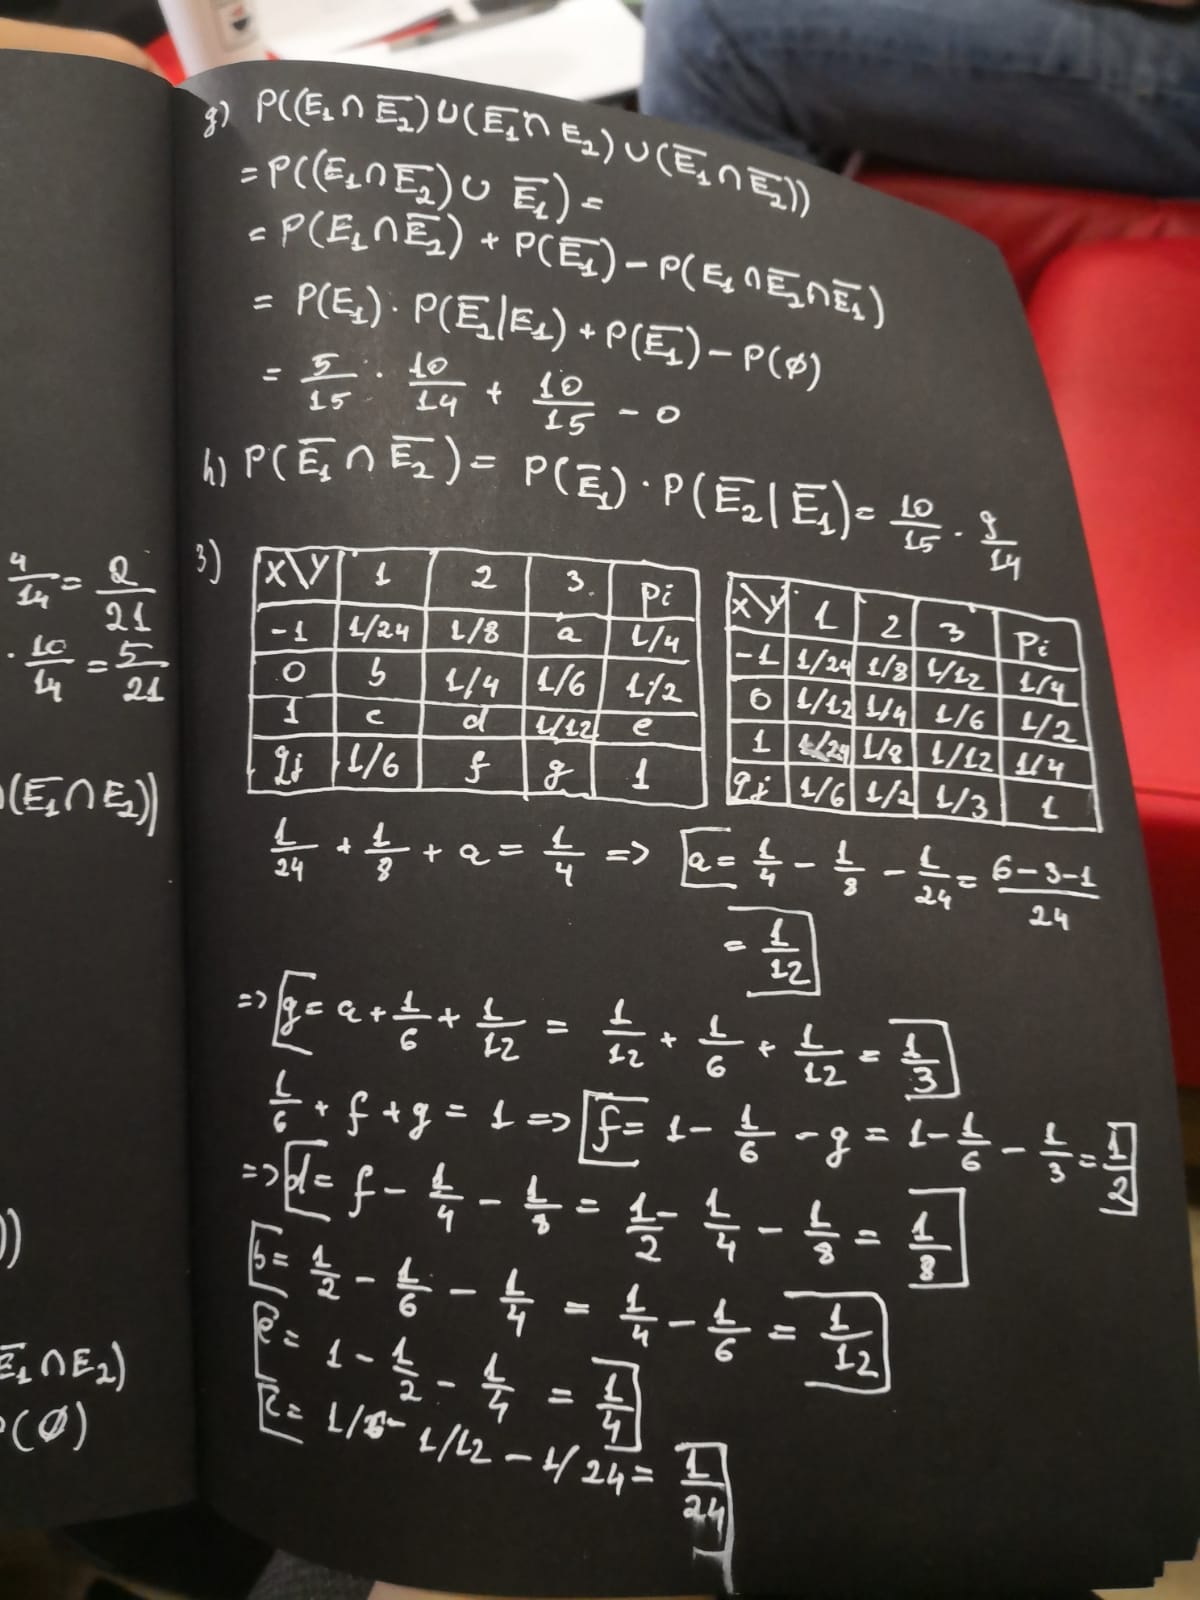 4/14 = 2/21
· 10/14 = 5/21
(E̅₁ ∩ E₂))
))
E̅₁ ∩ E₂)
P(∅)
g) P((E₁ ∩ E̅₂) ∪ (E̅₁ ∩ E₂) ∪ (E̅₁ ∩ E̅₂))
= P((E₁ ∩ E̅₂) ∪ E̅₁) =
= P(E₁ ∩ E̅₂) + P(E̅₁) − P(E₁ ∩ E̅₂ ∩ E̅₁)
= P(E₁) · P(E̅₂|E₁) + P(E̅₁) − P(∅)
= 5/15 · 10/14 + 10/15 − 0
h) P(E̅₁ ∩ E̅₂) = P(E̅₁) · P(E̅₂|E̅₁) = 10/15 · 9/14
3)
X\Y 1 2 3 Pi
-1 1/24 1/8 a 1/4
0 b 1/4 1/6 1/2
1 c d 1/12 e
qj 1/6 f g 1
X\Y 1 2 3 Pi
-1 1/24 1/8 1/12 1/4
0 1/12 1/4 1/6 1/2
1 1/24 1/8 1/12 1/4
qj 1/6 1/2 1/3 1
1/24 + 1/8 + a = 1/4 => a = 1/4 − 1/8 − 1/24 = (6−3−1)/24
= 1/12
=> g = a + 1/6 + 1/12 = 1/12 + 1/6 + 1/12 = 1/3
1/6 + f + g = 1 => f = 1 − 1/6 − g = 1 − 1/6 − 1/3 = 1/2
=> d = f − 1/4 − 1/8 = 1/2 − 1/4 − 1/8 = 1/8
b = 1/2 − 1/6 − 1/4 = 1/4 − 1/6 = 1/12
e = 1 − 1/2 − 1/4 = 1/4
c = 1/6 − 1/12 − 1/24 = 1/24